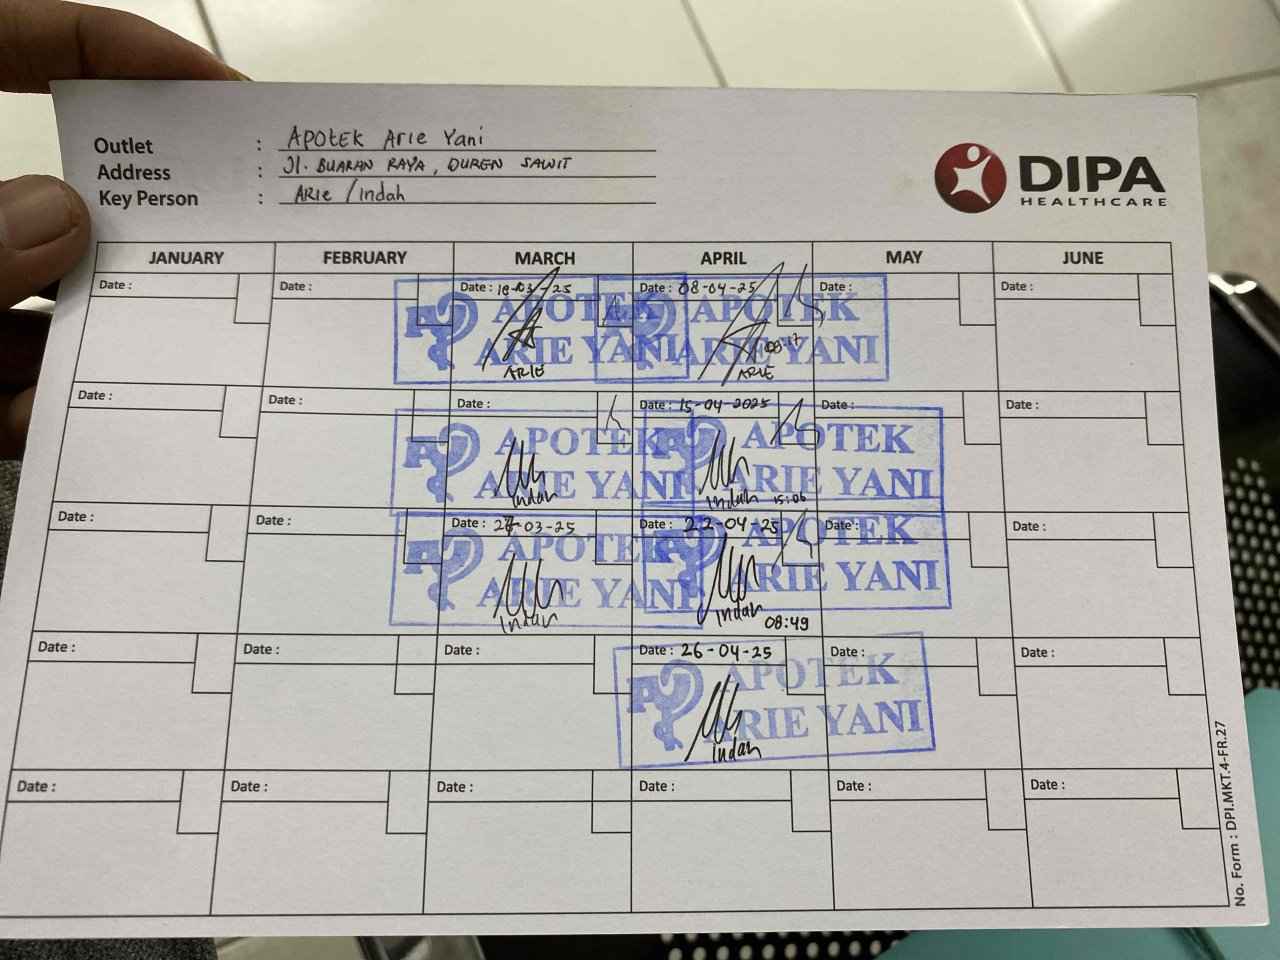 Outlet : APOTEK Arie Yani
Address : Jl. BUARAN RAYA, DUREN SAWIT
Key Person : ARIE / Indah
DIPA
HEALTHCARE
JANUARY FEBRUARY MARCH APRIL MAY JUNE
Date : Date : Date : -03-25 Date : 08-04-25 Date : Date :
APOTEK APOTEK
ARIE YANI ARIE YANI
08:17
ARIE ARIE
Date : Date : Date : Date : 15-04-2025 Date : Date :
APOTEK APOTEK
ARIE YANI ARIE YANI
Indah Indah 15:06
Date : Date : Date : -03-25 Date : 22-04-25 Date : Date :
APOTEK APOTEK
ARIE YANI ARIE YANI
Indah Indah
08:49
Date : Date : Date : Date : 26-04-25 Date : Date :
APOTEK
ARIE YANI
Indah
Date : Date : Date : Date : Date : Date :
No. Form : DPI.MKT.4-FR.27